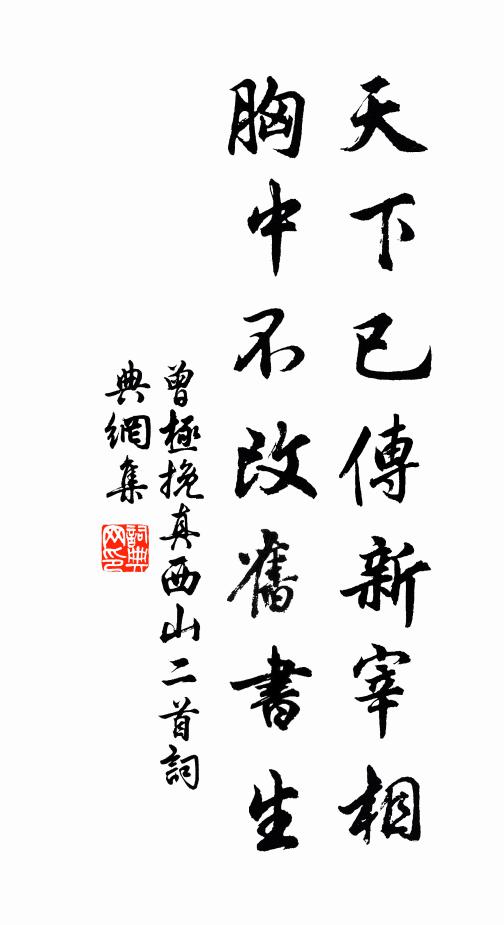 天下已傳新宰相
胸中不改舊書生
曾極挽真西山二首詞
典網集
詞典網印